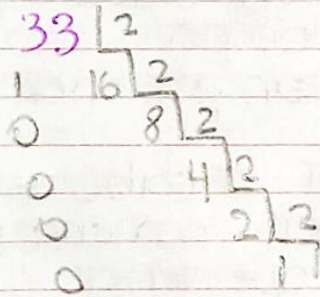 33 2
1 16 2
0 8 2
0 4 2
0 2 2
0 1